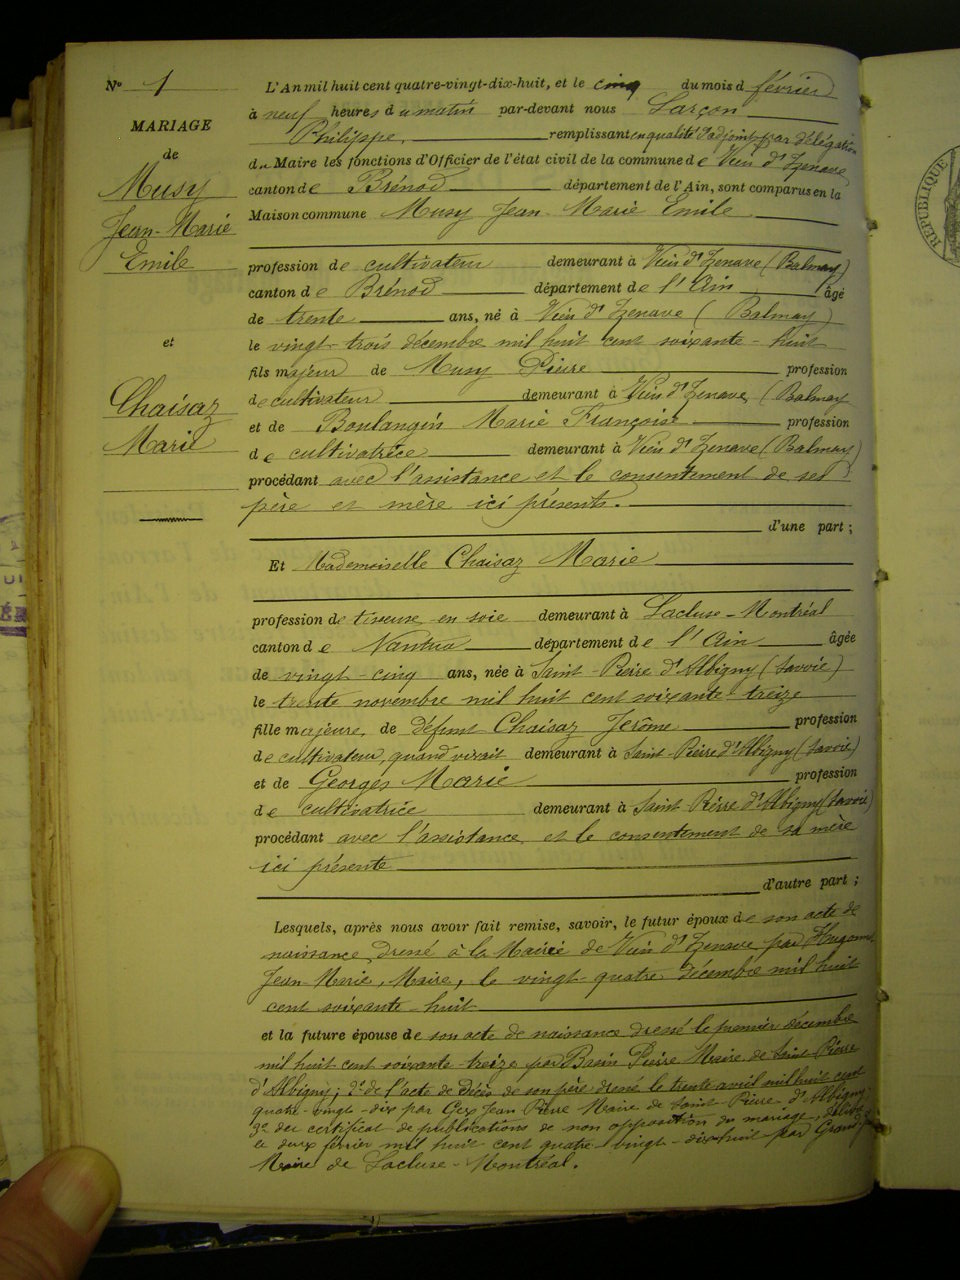 No 1
MARIAGE
de
Musy
Jean-Marie
Emile
et
Chaisaz
Marie
L'An mil huit cent quatre-vingt-dix-huit, et le cinq du mois d février
à neuf heures du matin par-devant nous Larçon
Philippe, remplissant en qualité d'adjoint par délégation
du Maire les fonctions d'Officier de l'état civil de la commune de Vieu d'Izenave
canton de Brénod département de l'Ain, sont comparus en la
Maison commune Musy Jean-Marie Emile
profession de cultivateur demeurant à Vieu d'Izenave (Balmay)
canton de Brénod département de l'Ain âgé
de trente ans, né à Vieu d'Izenave (Balmay)
le vingt-trois décembre mil huit cent soixante-huit
fils majeur de Musy Pierre profession
de cultivateur demeurant à Vieu d'Izenave (Balmay
et de Boulangin Marie Françoise profession
de cultivatrice demeurant à Vieu d'Izenave (Balmay)
procédant avec l'assistance et le consentement de ses
père et mère ici présents.
d'une part ;
Et Mademoiselle Chaisaz Marie
profession de tisseuse en soie demeurant à Lacluse-Montréal
canton de Nantua département de l'Ain âgée
de vingt-cinq ans, née à Saint-Pierre d'Albigny (Savoie)
le trente novembre mil huit cent soixante-treize
fille majeure, de défunt Chaisaz Jerôme profession
de cultivateur, quand vivait demeurant à Saint-Pierre d'Albigny (Savoie)
et de Georges Marie profession
de cultivatrice demeurant à Saint-Pierre d'Albigny (Savoie)
procédant avec l'assistance et le consentement de sa mère
ici présente
d'autre part ;
Lesquels, après nous avoir fait remise, savoir, le futur époux de son acte de
naissance dressé à la Mairie de Vieu d'Izenave par
Jean-Marie, Maire, le vingt-quatre décembre mil huit
cent soixante-huit
et la future épouse de son acte de naissance dressé le premier décembre
mil huit cent soixante-treize par Basin Pierre Maire de Saint-Pierre
d'Albigny; 2° de l'acte de Décès de son père dressé le trente avril mil huit cent
quatre-vingt-dix par Gex Jean Pierre Maire de Saint-Pierre-d'Albigny;
3° du certificat de publications de non opposition du mariage, délivré
le deux février mil huit cent quatre-vingt-dix-huit par
Maire de Lacluse-Montréal.
REPUBLIQUE